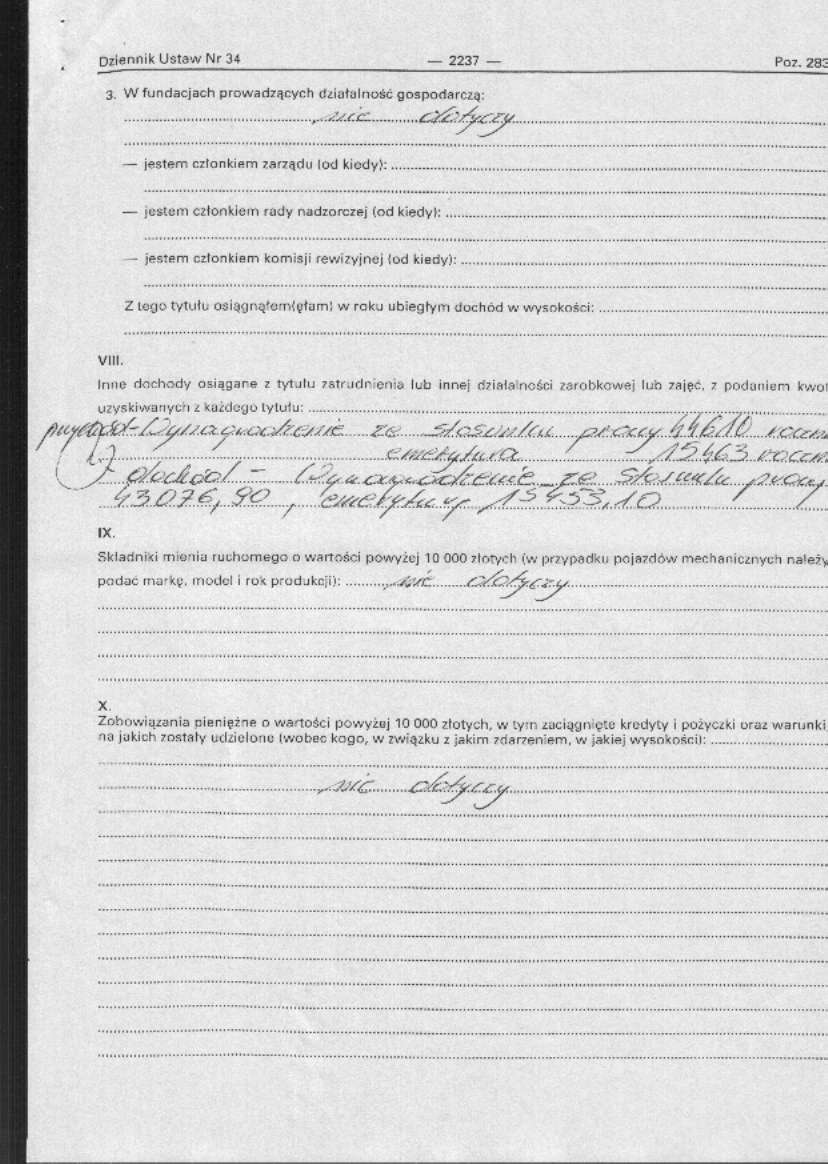 Dziennik Ustaw Nr 34 — 2237 — Poz. 283
3. W fundacjach prowadzących działalność gospodarczą:
nie dotyczy
— jestem członkiem zarządu (od kiedy):
— jestem członkiem rady nadzorczej (od kiedy):
— jestem członkiem komisji rewizyjnej (od kiedy):
Z tego tytułu osiągnąłem(ęłam) w roku ubiegłym dochód w wysokości:
VIII.
Inne dochody osiągane z tytułu zatrudnienia lub innej działalności zarobkowej lub zajęć, z podaniem kwot
uzyskiwanych z każdego tytułu:
przychód - Wynagrodzenie ze stosunku pracy 44610 roczn
emerytura - 15463 roczn
dochód - Wynagrodzenie ze stosunku pracy
43076,90, emerytury 15453,10
IX.
Składniki mienia ruchomego o wartości powyżej 10 000 złotych (w przypadku pojazdów mechanicznych należy
podać markę, model i rok produkcji): nie dotyczy
X.
Zobowiązania pieniężne o wartości powyżej 10 000 złotych, w tym zaciągnięte kredyty i pożyczki oraz warunki,
na jakich zostały udzielone (wobec kogo, w związku z jakim zdarzeniem, w jakiej wysokości):
nie dotyczy